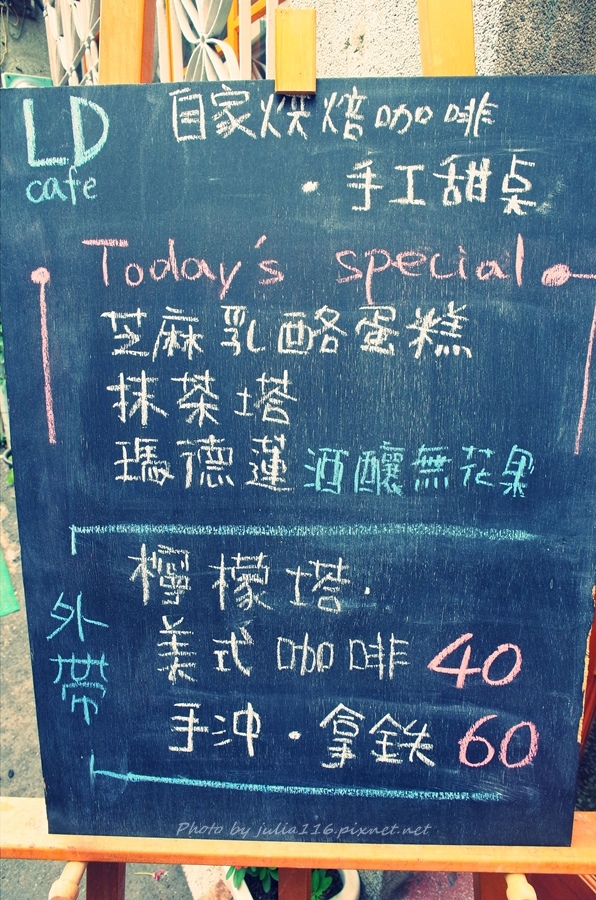 LD
cafe
自家烘焙咖啡
·手工甜桌
Today's special
芝麻乳酪蛋糕
抹茶塔
瑪德蓮 酒釀無花果
外帶
檸檬塔·
美式咖啡 40
手沖·拿鉄 60
Photo by julia116.pixnet.net